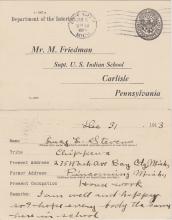 Department of the Interior
Mr. M. Friedman
Supt. U. S. Indian School
Carlisle
Pennsylvania
Dec 31 1913
Name Lucy E. Stevens
Tribe Chippewa
Present Address Bay City Mich,
Former Address Pinconning Mich,
Present Occupation House work
Remarks I am well and happy
body the same
here in school